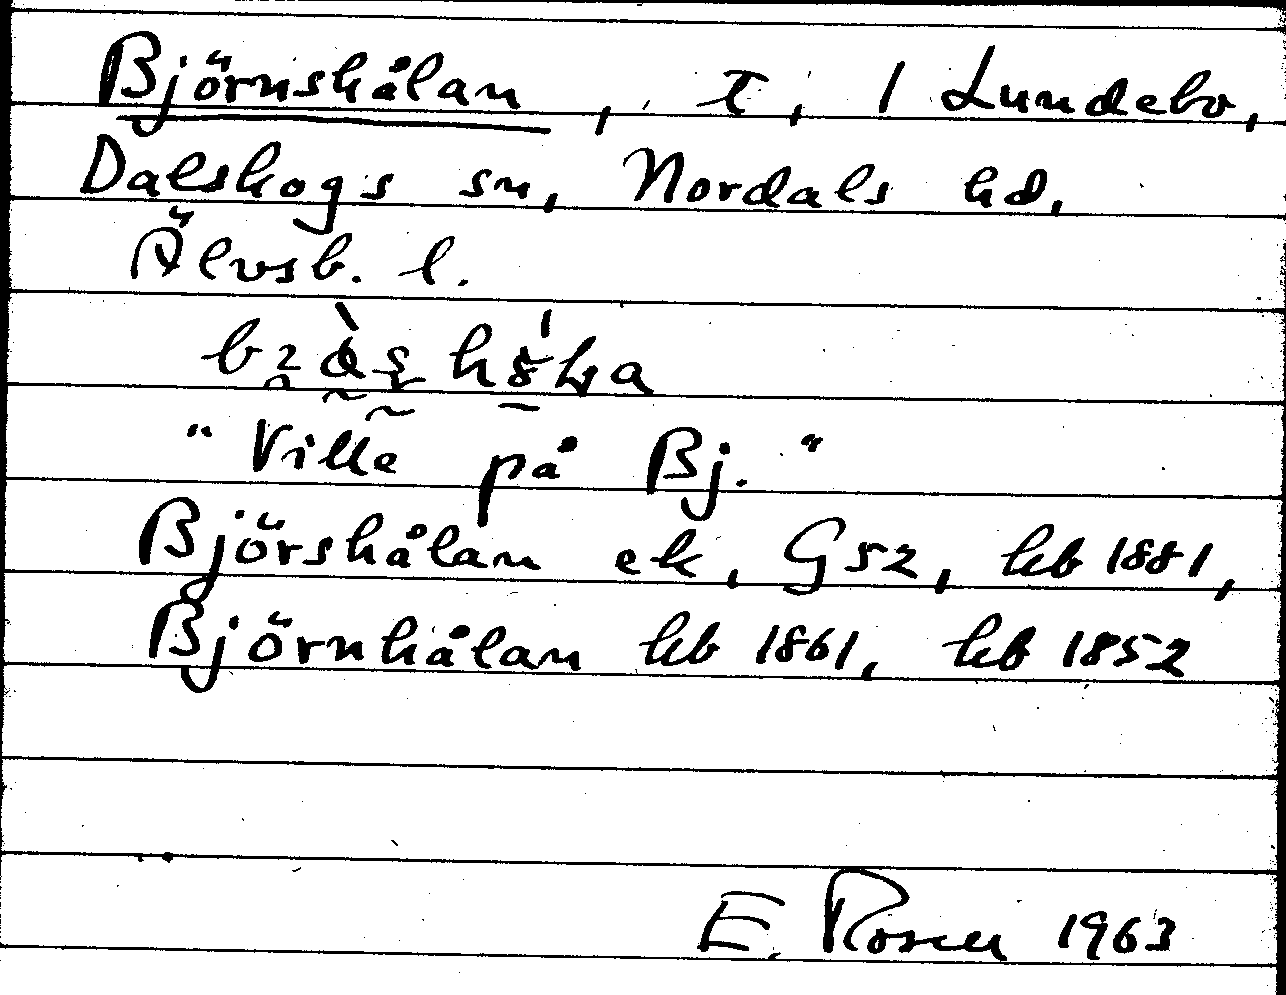 Björnshålan, t, 1 Lundebo,
Dalskogs sn, Nordals hd,
Älvsb. l.
"Ville på Bj."
Björshålan ek, G52, hb 1881,
Björnhålan hb 1861, hb 1852
E. Rosén 1963